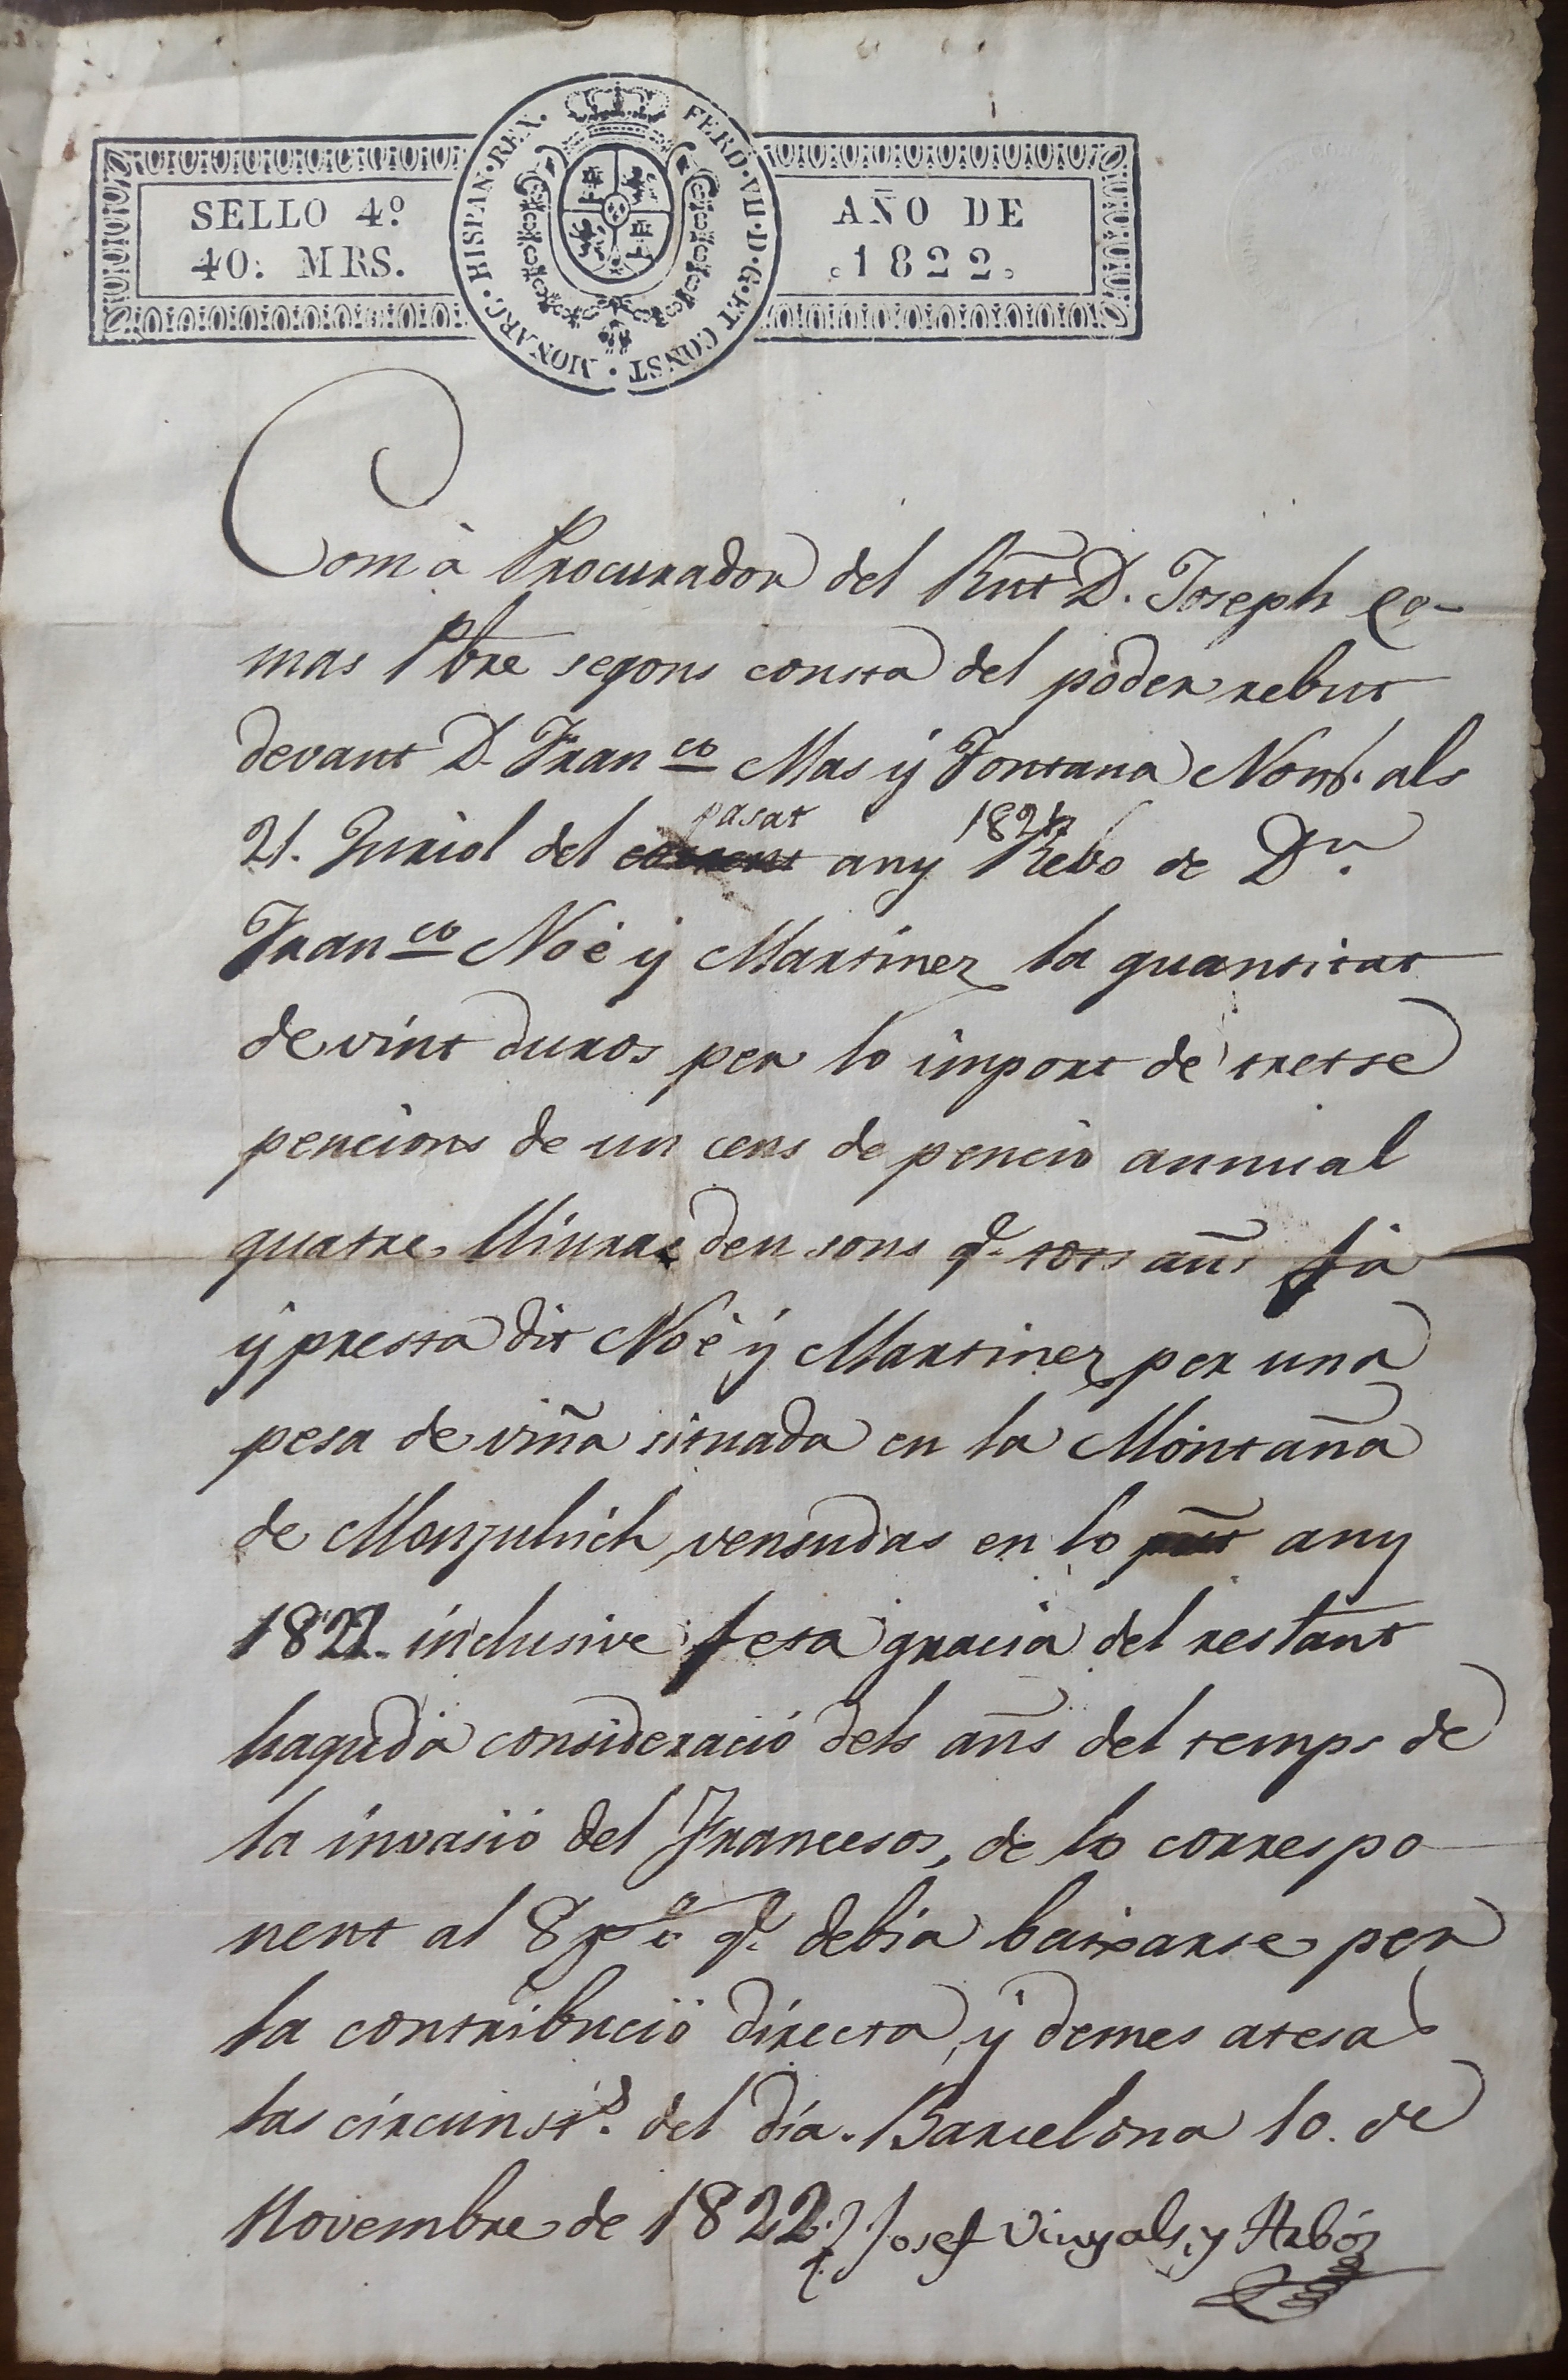 SELLO 4.º
40. MRS.
FERD·VII·D·G·ET CONST· MONARC·HISPAN·REX.
AÑO DE
1822.
Com à Procurador del Rnt D. Joseph Co-
mas Pbre segons consta del poder rebut
devant D. Franco Mas ÿ Fontana Nott. als
21. Juriol del pasat any 1821 Rebo de Dn.
Franco Noè ÿ Martinez la quantitat
de vint duros per lo import de tretse
pencions de un cens de penció annual
quatre lliuras deu sous q.e tots añs fa
ÿ presta dit Noè ÿ Martinez per una
pesa de viña situada en la Montaña
de Monjuhich, vensudas en lo pnt any
1822. inclusive, feta gracia del restant
haguda consideració dels añs del temps de
la invasió del Francesos, de lo correspo
nent al 8 p.r c.o q.e debia baixarse per
la contribució directa, ÿ demes atesas
las circunst.s del dia. Barcelona 10. de
Novembre de 1822.
Josef Vinyals, y Arbós